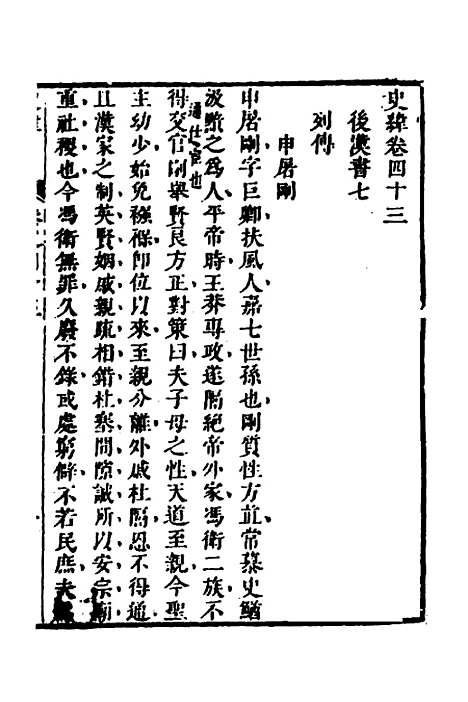 史緯卷四十三
後漢書七
列傳
申屠剛
申屠剛字巨卿扶風人嘉七世孫也剛質性方直常慕史鰌
汲黯之爲人平帝時王莽專政遂隔絕帝外家馮衛二族不
得交官剛舉賢良方正對策曰夫子母之性天道至親今聖
通仕宦也
主幼少始免襁褓卽位以來至親分離外戚杜隔恩不得通
且漢家之制英賢姻戚親疏相錯杜塞間隙誠所以安宗廟
重社稷也今馮衛無罪久廢不錄或處窮僻不若民庶夫